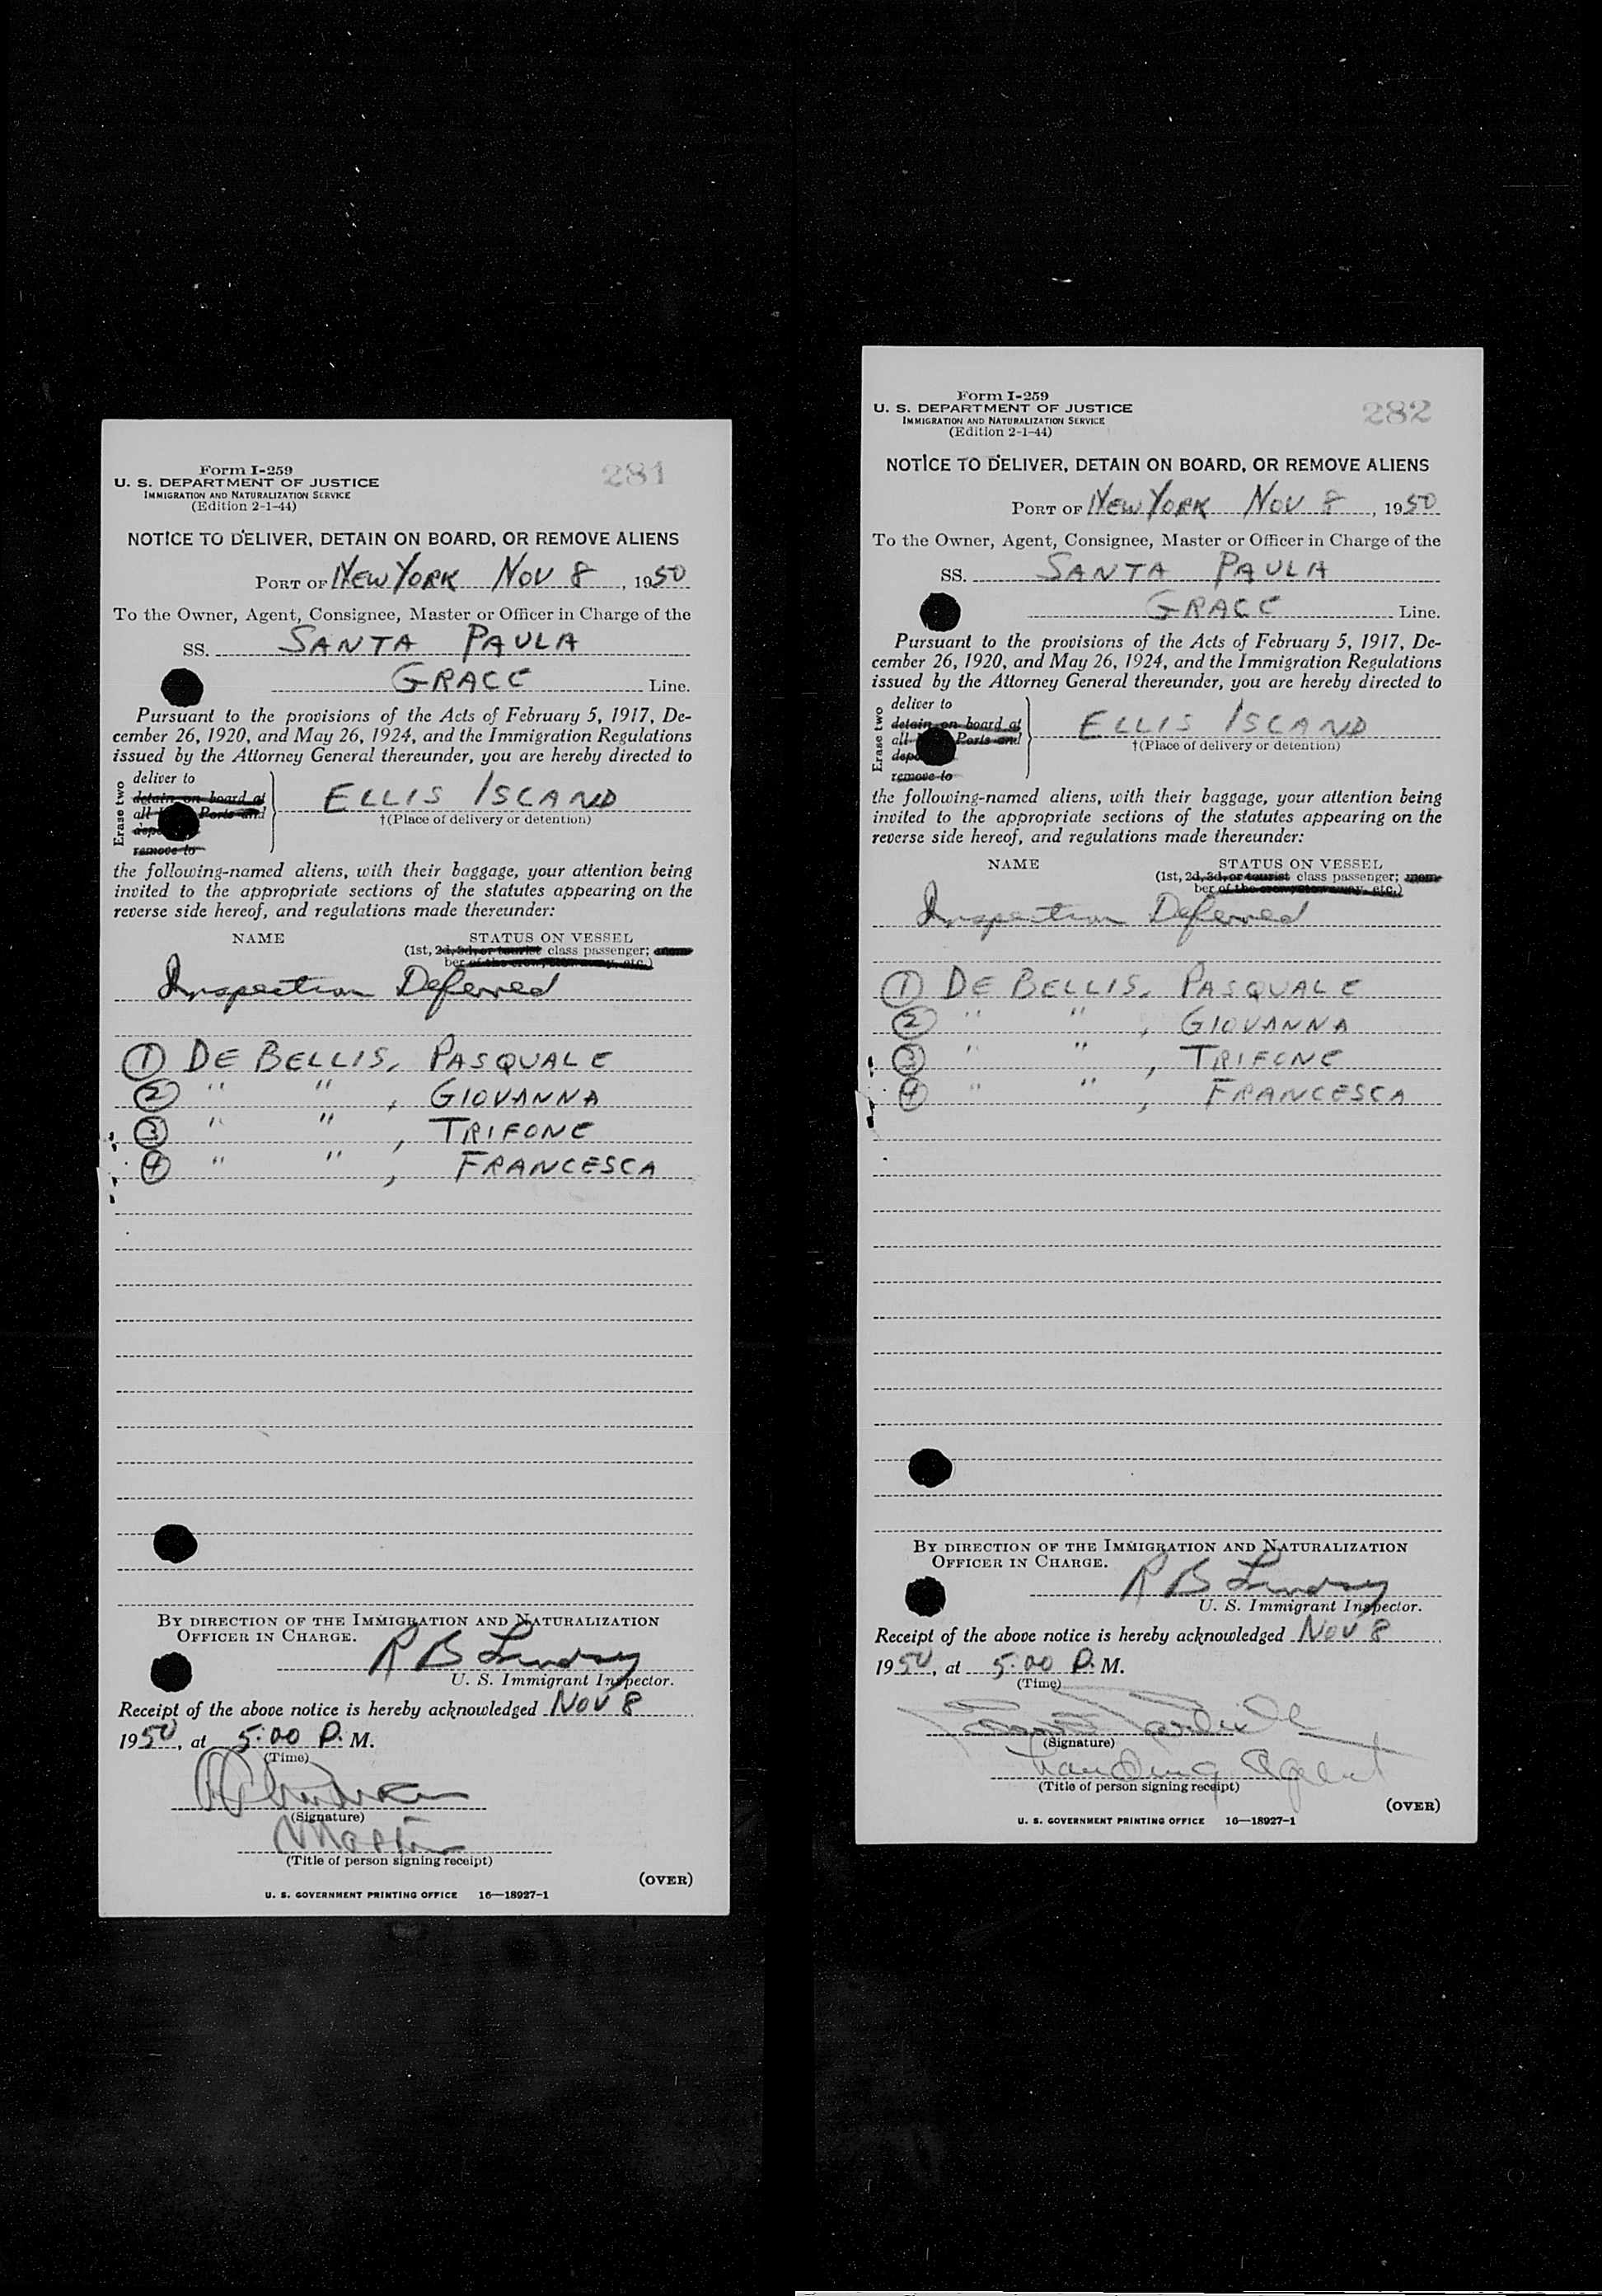 Form I-259
U. S. DEPARTMENT OF JUSTICE
IMMIGRATION AND NATURALIZATION SERVICE
(Edition 2-1-44)
281
NOTICE TO DELIVER, DETAIN ON BOARD, OR REMOVE ALIENS
PORT OF NEW YORK NOV 8, 1950
To the Owner, Agent, Consignee, Master or Officer in Charge of the
SS. SANTA PAULA
GRACE Line.
Pursuant to the provisions of the Acts of February 5, 1917, De-
cember 26, 1920, and May 26, 1924, and the Immigration Regulations
issued by the Attorney General thereunder, you are hereby directed to
Erase two
deliver to
detain on board at
all Ports and
remove to
ELLIS ISLAND
†(Place of delivery or detention)
the following-named aliens, with their baggage, your attention being
invited to the appropriate sections of the statutes appearing on the
reverse side hereof, and regulations made thereunder:
NAME STATUS ON VESSEL
(1st, 2d, 3d, or tourist class passenger; mem-
ber of the crew, stowaway, etc.)
Inspection Deferred
① DE BELLIS, PASQUALE
② " " , GIOVANNA
③ " " , TRIFONE
④ " " , FRANCESCA
BY DIRECTION OF THE IMMIGRATION AND NATURALIZATION
OFFICER IN CHARGE.
R B Lindsey
U. S. Immigrant Inspector.
Receipt of the above notice is hereby acknowledged NOV 8
1950, at 5:00 P. M.
(Time)
(Signature)
Master
(Title of person signing receipt)
(OVER)
U. S. GOVERNMENT PRINTING OFFICE 16—18927-1
Form I-259
U. S. DEPARTMENT OF JUSTICE
IMMIGRATION AND NATURALIZATION SERVICE
(Edition 2-1-44)
282
NOTICE TO DELIVER, DETAIN ON BOARD, OR REMOVE ALIENS
PORT OF NEW YORK NOV 8, 1950
To the Owner, Agent, Consignee, Master or Officer in Charge of the
SS. SANTA PAULA
GRACE Line.
Pursuant to the provisions of the Acts of February 5, 1917, De-
cember 26, 1920, and May 26, 1924, and the Immigration Regulations
issued by the Attorney General thereunder, you are hereby directed to
Erase two
deliver to
detain on board at
all Ports and
remove to
ELLIS ISLAND
†(Place of delivery or detention)
the following-named aliens, with their baggage, your attention being
invited to the appropriate sections of the statutes appearing on the
reverse side hereof, and regulations made thereunder:
NAME STATUS ON VESSEL
(1st, 2d, 3d, or tourist class passenger; mem-
ber of the crew, stowaway, etc.)
Inspection Deferred
① DE BELLIS, PASQUALE
② " " , GIOVANNA
③ " " , TRIFONE
④ " " , FRANCESCA
BY DIRECTION OF THE IMMIGRATION AND NATURALIZATION
OFFICER IN CHARGE.
R B Lindsey
U. S. Immigrant Inspector.
Receipt of the above notice is hereby acknowledged NOV 8
1950, at 5:00 P. M.
(Time)
(Signature)
Landing Agent
(Title of person signing receipt)
(OVER)
U. S. GOVERNMENT PRINTING OFFICE 16—18927-1